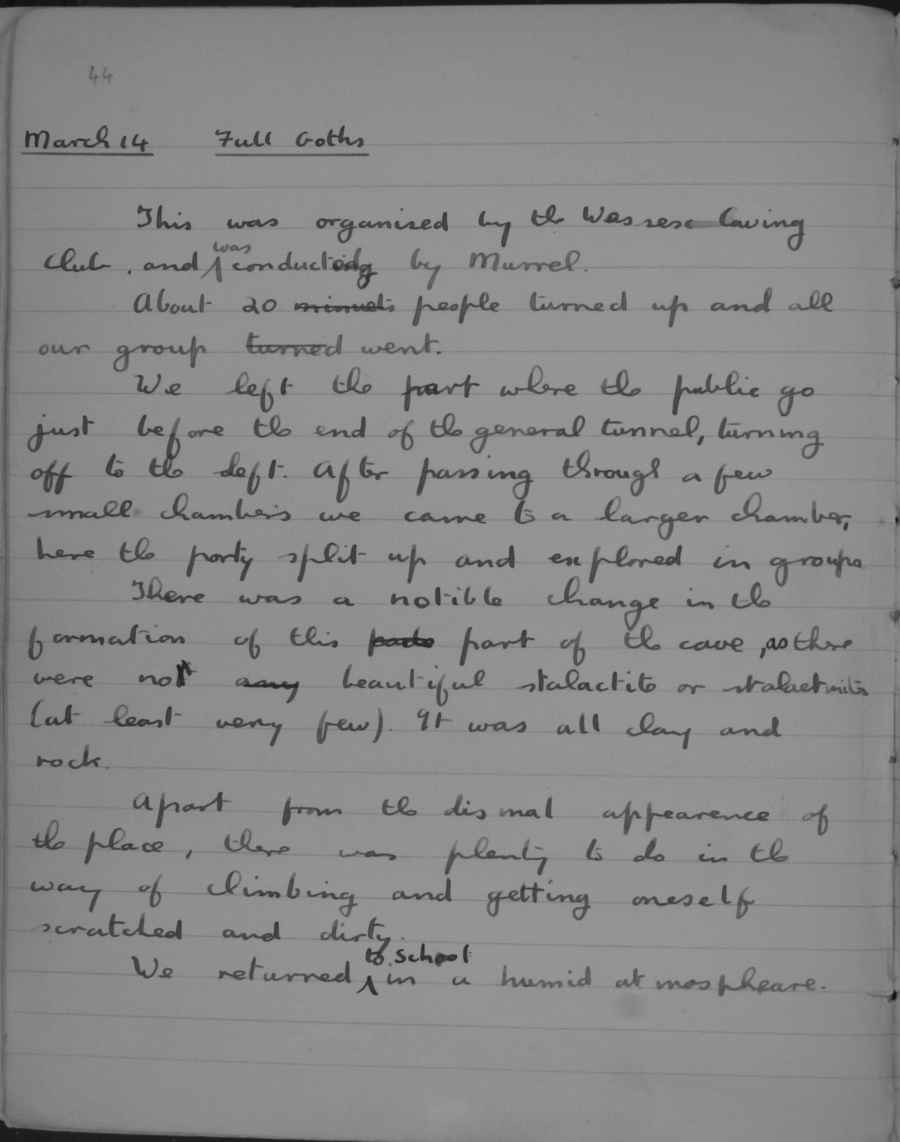 44
March 14 Full Goths
This was organised by the Wessesc Caving
Club, and was conducted by Murrel.
About 20 minuets people turned up and all
our group turned went.
We left the part where the public go
just before the end of the general tunnel, turning
off to the left. After passing through a few
small chambers we came to a larger chamber,
here the party split up and explored in groups
There was a notible change in the
formation of this part of the cave, as there
were not any beautiful stalactite or stalactmites
(at least very few). It was all clay and
rock.
Apart from the dismal appearence of
the place, there was plenty to do in the
way of climbing and getting oneself
scratched and dirty.
We returned to school in a humid atmospheare.